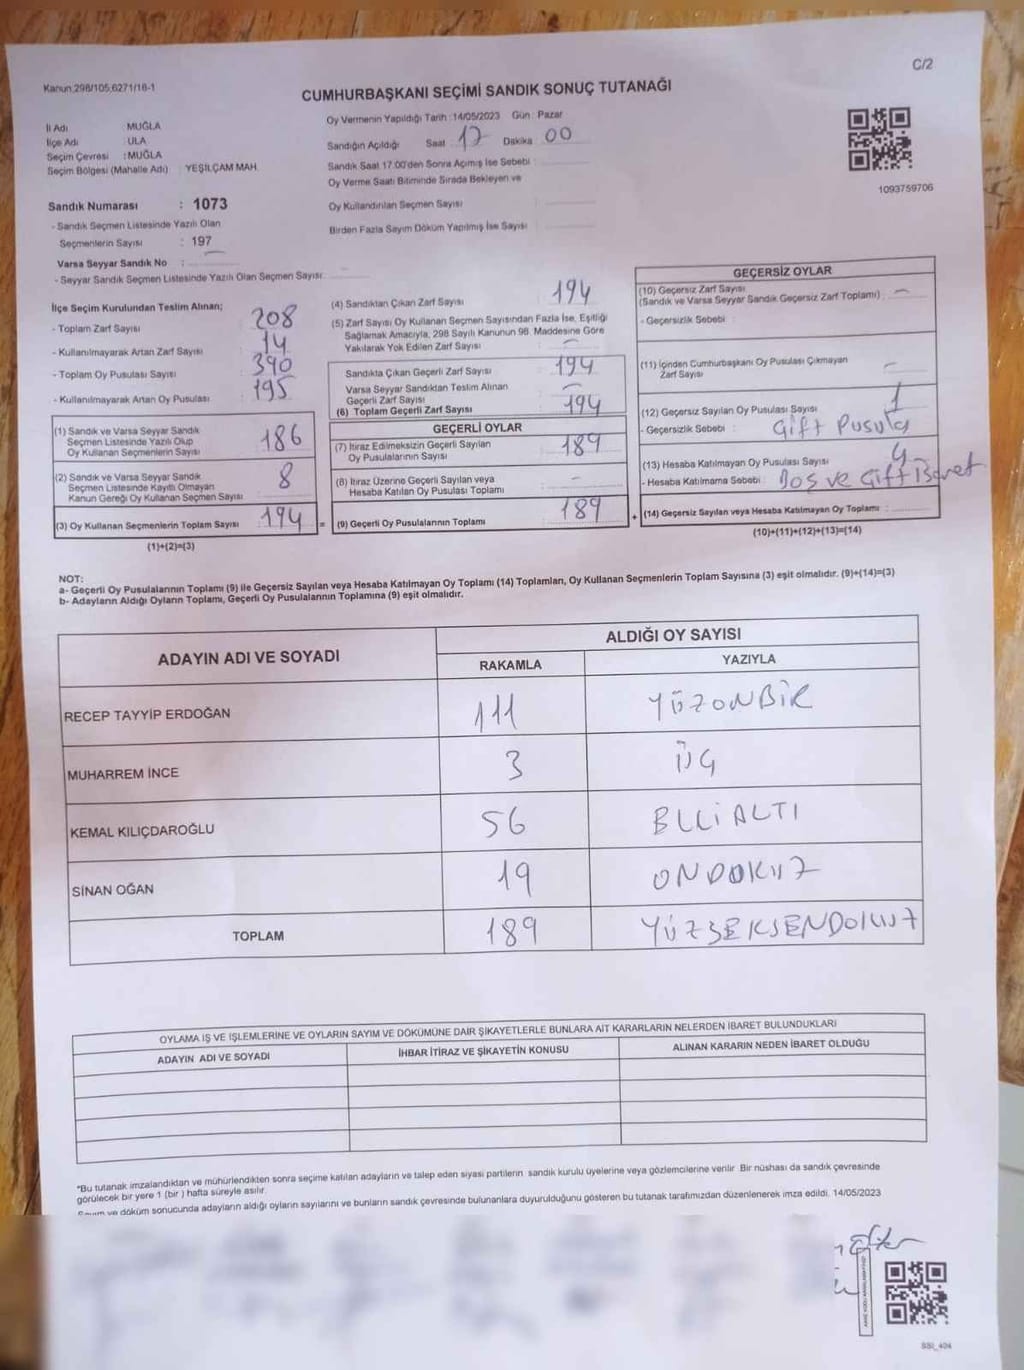 C/2
Kanun:298/105,6271/18-1
CUMHURBAŞKANI SEÇİMİ SANDIK SONUÇ TUTANAĞI
İl Adı MUĞLA
İlçe Adı : ULA
Seçim Çevresi : MUĞLA
Seçim Bölgesi (Mahalle Adı) : YEŞİLÇAM MAH.
Oy Vermenin Yapıldığı Tarih :14/05/2023 Gün : Pazar
Sandığın Açıldığı Saat 17 Dakika 00
Sandık Saat 17:00'den Sonra Açılmış İse Sebebi :
Oy Verme Saati Bitiminde Sırada Bekleyen ve
Oy Kullandırılan Seçmen Sayısı :
Birden Fazla Sayım Döküm Yapılmış İse Sayısı :
1093759706
Sandık Numarası : 1073
- Sandık Seçmen Listesinde Yazılı Olan
Seçmenlerin Sayısı : 197
Varsa Seyyar Sandık No :
- Seyyar Sandık Seçmen Listesinde Yazılı Olan Seçmen Sayısı:
İlçe Seçim Kurulundan Teslim Alınan;
- Toplam Zarf Sayısı : 208
- Kullanılmayarak Artan Zarf Sayısı : 14
- Toplam Oy Pusulası Sayısı : 390
- Kullanılmayarak Artan Oy Pusulası : 195
(1) Sandık ve Varsa Seyyar Sandık
Seçmen Listesinde Yazılı Olup
Oy Kullanan Seçmenlerin Sayısı : 186
(2) Sandık ve Varsa Seyyar Sandık
Seçmen Listesinde Kayıtlı Olmayan
Kanun Gereği Oy Kullanan Seçmen Sayısı : 8
(3) Oy Kullanan Seçmenlerin Toplam Sayısı : 194 =
(1)+(2)=(3)
(4) Sandıktan Çıkan Zarf Sayısı : 194
(5) Zarf Sayısı Oy Kullanan Seçmen Sayısından Fazla İse, Eşitliği
Sağlamak Amacıyla, 298 Sayılı Kanunun 98. Maddesine Göre
Yakılarak Yok Edilen Zarf Sayısı : –
Sandıkta Çıkan Geçerli Zarf Sayısı : 194
Varsa Seyyar Sandıktan Teslim Alınan
Geçerli Zarf Sayısı : –
(6) Toplam Geçerli Zarf Sayısı : 194
GEÇERLİ OYLAR
(7) İtiraz Edilmeksizin Geçerli Sayılan
Oy Pusulalarının Sayısı : 189
(8) İtiraz Üzerine Geçerli Sayılan veya
Hesaba Katılan Oy Pusulası Toplamı : -
(9) Geçerli Oy Pusulalarının Toplamı : 189 +
GEÇERSİZ OYLAR
(10) Geçersiz Zarf Sayısı
(Sandık ve Varsa Seyyar Sandık Geçersiz Zarf Toplamı) : –
- Geçersizlik Sebebi :
(11) İçinden Cumhurbaşkanı Oy Pusulası Çıkmayan
Zarf Sayısı : –
(12) Geçersiz Sayılan Oy Pusulası Sayısı : 1
- Geçersizlik Sebebi : Çift Pusula
(13) Hesaba Katılmayan Oy Pusulası Sayısı : 4
- Hesaba Katılmama Sebebi : Boş ve Çift İşaret
(14) Geçersiz Sayılan veya Hesaba Katılmayan Oy Toplamı :
(10)+(11)+(12)+(13)=(14)
NOT:
a- Geçerli Oy Pusulalarının Toplamı (9) ile Geçersiz Sayılan veya Hesaba Katılmayan Oy Toplamı (14) Toplamları, Oy Kullanan Seçmenlerin Toplam Sayısına (3) eşit olmalıdır. (9)+(14)=(3)
b- Adayların Aldığı Oyların Toplamı, Geçerli Oy Pusulalarının Toplamına (9) eşit olmalıdır.
ADAYIN ADI VE SOYADI
ALDIĞI OY SAYISI
RAKAMLA YAZIYLA
RECEP TAYYİP ERDOĞAN 111 YÜZONBİR
MUHARREM İNCE 3 ÜÇ
KEMAL KILIÇDAROĞLU 56 ELLİALTI
SİNAN OĞAN 19 ONDOKUZ
TOPLAM 189 YÜZSEKSENDOKUZ
OYLAMA İŞ VE İŞLEMLERİNE VE OYLARIN SAYIM VE DÖKÜMÜNE DAİR ŞİKAYETLERLE BUNLARA AİT KARARLARIN NELERDEN İBARET BULUNDUKLARI
ADAYIN ADI VE SOYADI İHBAR İTİRAZ VE ŞİKAYETİN KONUSU ALINAN KARARIN NEDEN İBARET OLDUĞU
*Bu tutanak imzalandıktan ve mühürlendikten sonra seçime katılan adayların ve talep eden siyasi partilerin sandık kurulu üyelerine veya gözlemcilerine verilir. Bir nüshası da sandık çevresinde
görülecek bir yere 1 (bir ) hafta süreyle asılır.
Sayım ve döküm sonucunda adayların aldığı oyların sayılarını ve bunların sandık çevresinde bulunanlara duyurulduğunu gösteren bu tutanak tarafımızdan düzenlenerek imza edildi. 14/05/2023